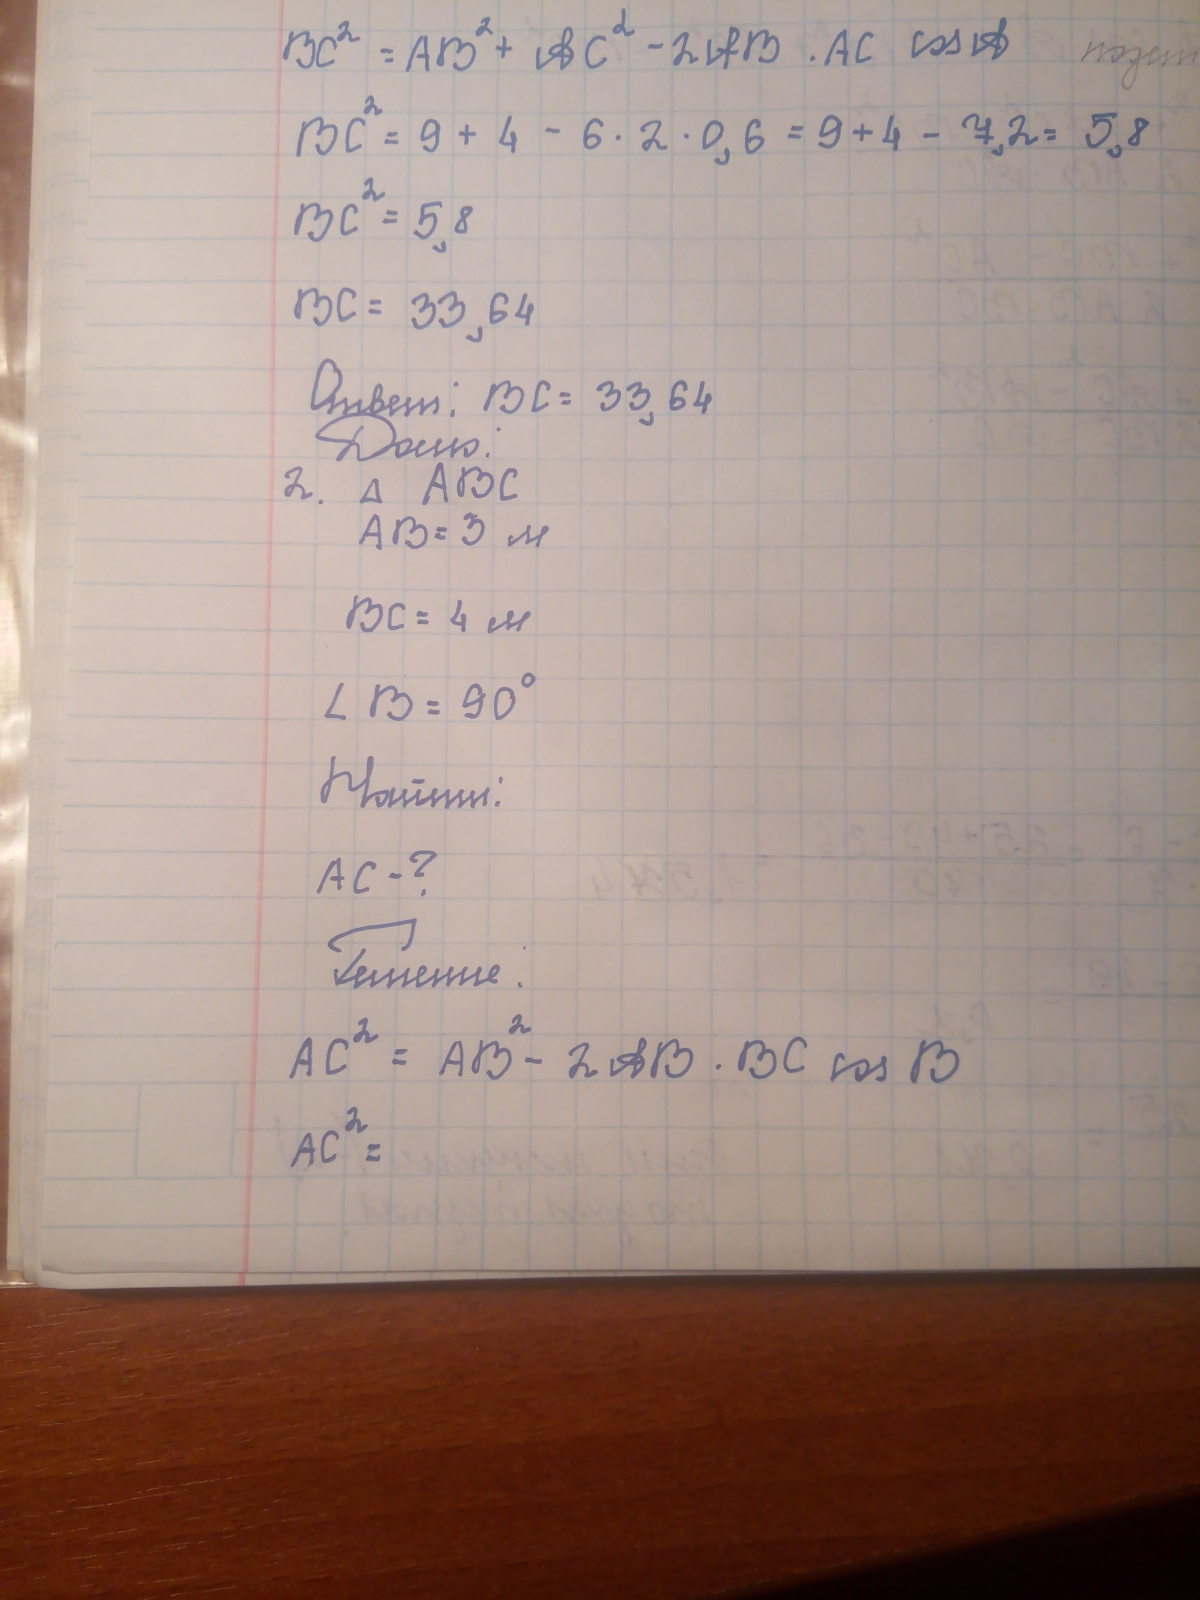 BC² = AB² + AC² - 2AB · AC cos A
BC² = 9 + 4 - 6 · 2 · 0,6 = 9 + 4 - 7,2 = 5,8
BC² = 5,8
BC = 33,64
Ответ: BC = 33,64
Дано:
2. Δ ABC
AB = 3 м
BC = 4 м
∠ B = 90°
Найти:
AC - ?
Решение:
AC² = AB² - 2 AB · BC cos B
AC² =